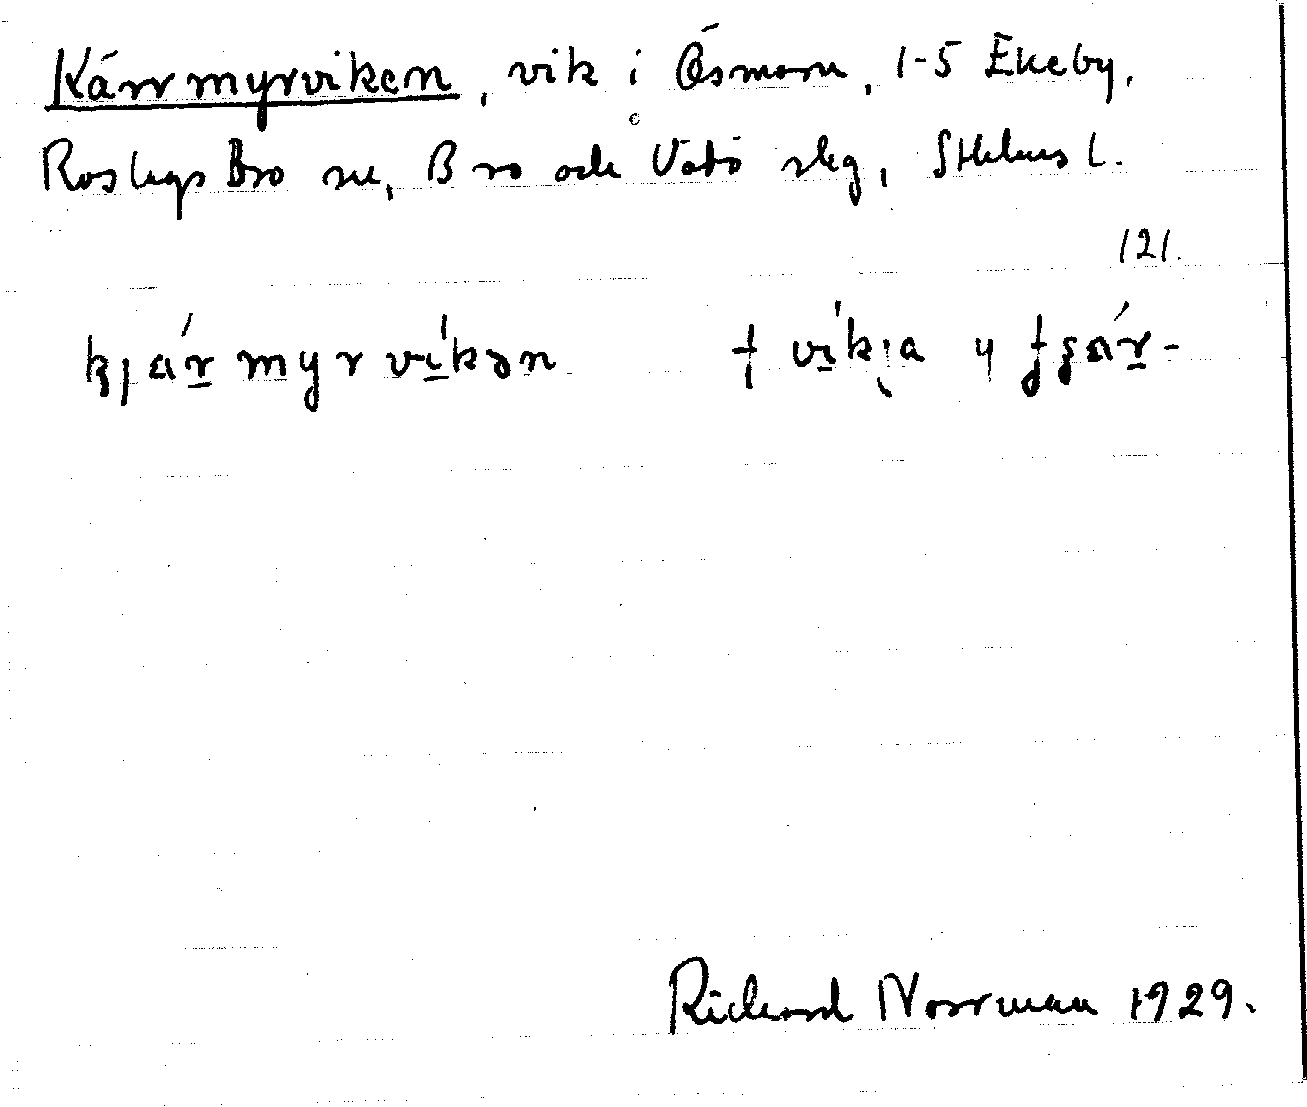 Kärrmyrviken, vik i Ösmaren, 1-5 Ekeby,
Roslags Bro sn, Bro och Vätö slg, Sthlms l.
121.
kjä́rmyrvíkən
Richard Norrman 1929.